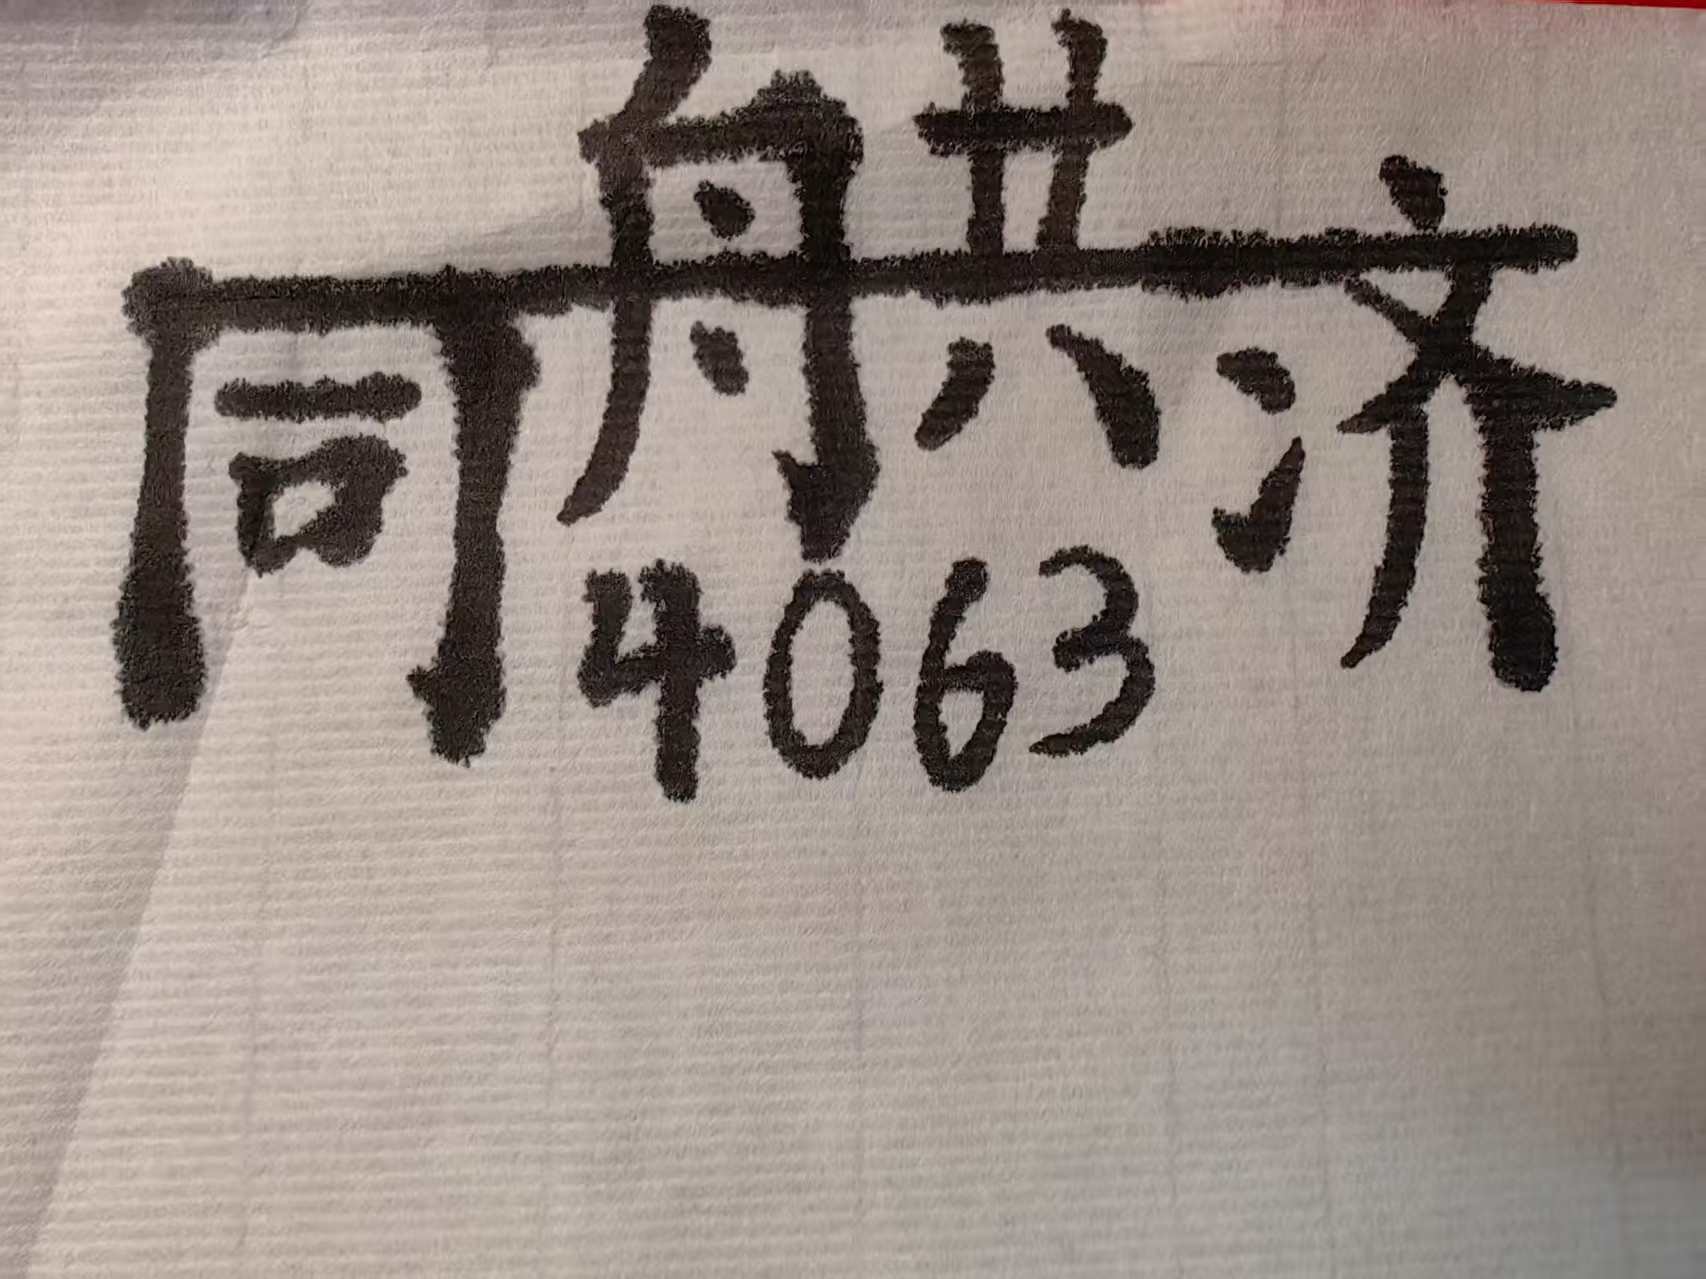 同舟共济
4063